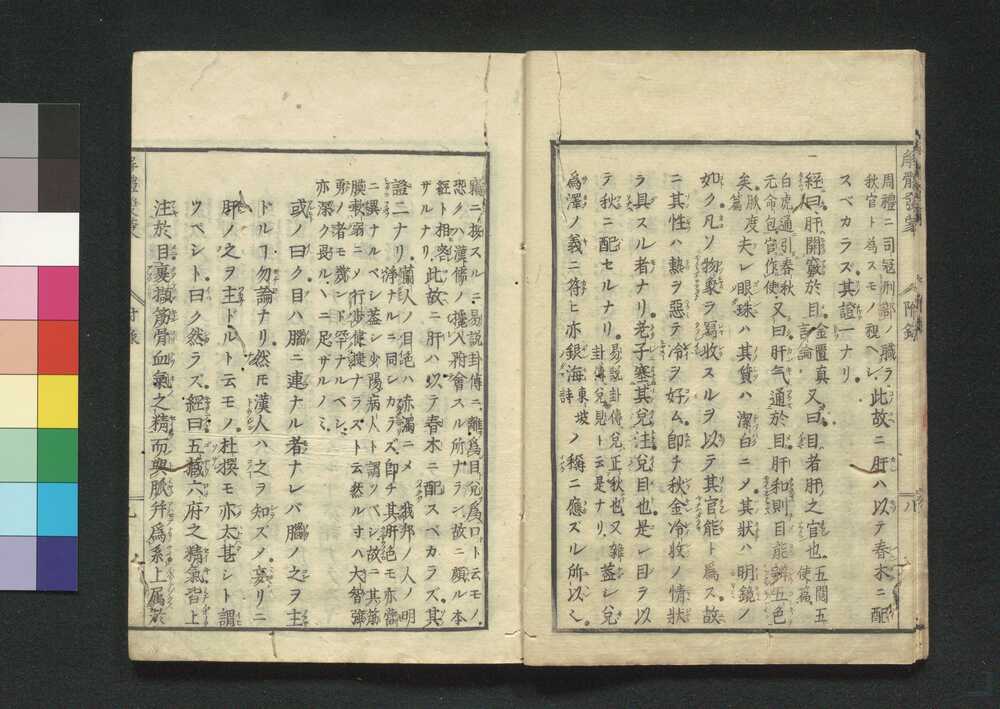 解體發蒙
附錄
八
周禮ニ司冦刑部ノ職ヲ
秋官ト為スモノ視ヘシ
此故ニ肝ハ以テ春木ニ配
スベカラズ其證一ナリ
經曰肝開竅於目
金匱真言論
又曰目者肝之官也
五閲五使篇
白虎通引春秋元命包
又曰肝气通於目肝和則目能辨五色
矣脉度篇
夫レ眼珠ハ其質ハ潔白ニメ其狀ハ明鏡ノ
如ク凡ソ物象ヲ寫收スルヲ以テ其官能ト為ス故
ニ其性ハ熱ヲ惡テ冷ヲ好ム即チ秋金冷收ノ情狀
ヲ具スル者ナリ老子塞其兌注兌目也是レ目ヲ以
テ秋ニ配セルナリ
易説卦傳兌正秋也又雜
卦傳兌見ト云是ナリ
蓋レ兌
為澤ノ義ニ符ヒ亦銀海
東坡詩
ノ稱ニ應ズル所以ミ
竊ニ按スルニ易説卦傳ニ離為目兌為口ト云モノ
恐クハ漢儒ノ攙入附會スル所ナラン故ニ頗ル本
經ト相咨
ザルナリ
此故ニ肝ハ以テ春木ニ配スベカラズ其
證二ナリ
蘭人ノ目絶ハ赤濁ニメ
我邦ノ人ノ明
淨ナルニ同シカラズ即チ其肝絶モ亦當
ニ異ナルベシ蓋シ少陽病人ト謂ツベシ故ニ其筋
膜耎弱ニメ行歩健捷ナラズト云然ルオハ大智強
勇ノ者モ鬱シド罕ナルベシ
亦深ク畏ルヽニ足ザルノミ
或ノ曰ク目ハ腦ニ連ナル者ナレバ腦ノ之ヲ主
ドルコ勿論ナリ然モ漢人ハ之ヲ知ズノ妄リニ
肝ノ之ヲ主ドルト云モノ杜撰モ亦太甚シト謂
ツベシト曰ク然ラズ經曰五藏六府之精氣皆上
注於目裹擷筋骨血氣之精而與脈幷為系上屬於